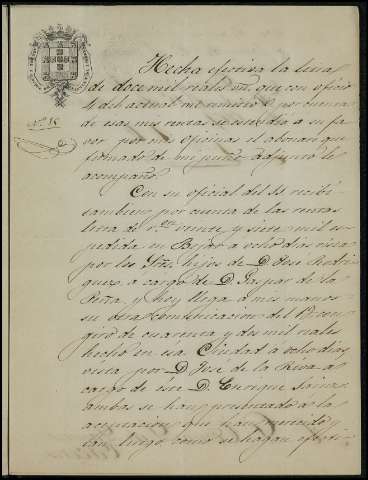 Hecha efectiva la letra
de doce mil reales vn. que con oficio
4 del actual me remitió V. por cuenta
de esas mis rentas se espidió a su fa-
vor por mis oficinas el abonaré que
firmado de mi puño adjunto le
acompaño.
Con su oficial del 11 recibí
tambien por cuenta de las rentas
letra de r.s veinte y siete mil es-
pedida en Bejar a ocho dias vista
por los Sres. hijos de D. Jose Rodri-
guez a cargo de D. Gaspar de la
Peña, y hoy llega a mis manos
su otra comunicacion del 13 con
giro de cuarenta y dos mil reales
hecho en esa Ciudad a ocho dias
vista por D. Jose de la Riva a
cargo de éste D. Enrique Sainz
ambas se han presentado a la
aceptacion que han merecido y
tan luego como se hagan efecti-